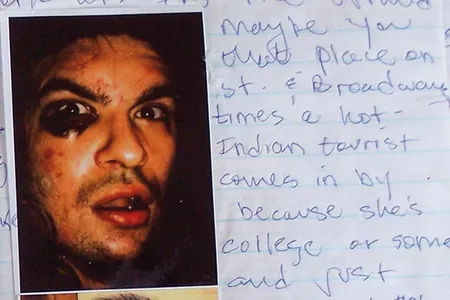 maybe you
that place on
st. & Broadway
times a hot
Indian tourist
comes in by
because she's
college or some
and just